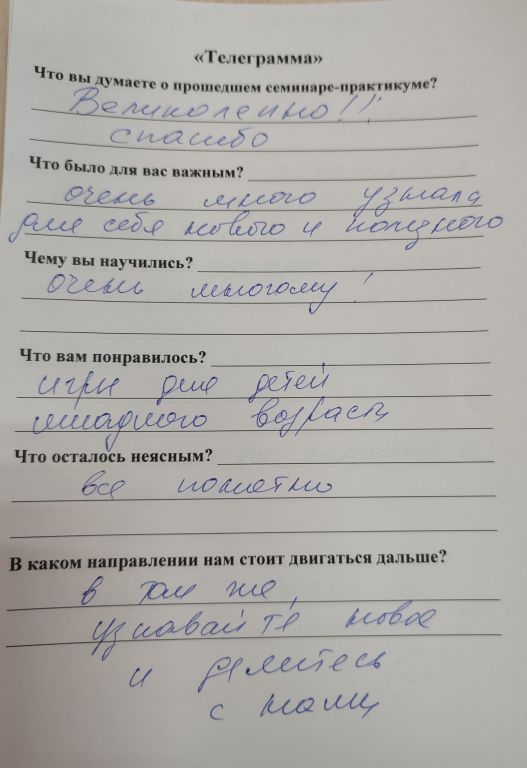 «Телеграмма»
Что вы думаете о прошедшем семинаре-практикуме?
Великолепно!!!
спасибо
Что было для вас важным?
очень много узнала
для себя нового и полезного
Чему вы научились?
очень многому!
Что вам понравилось?
игры для детей
младшего возраста
Что осталось неясным?
все понятно
В каком направлении нам стоит двигаться дальше?
в том же,
узнавайте новое
и делитесь
с нами